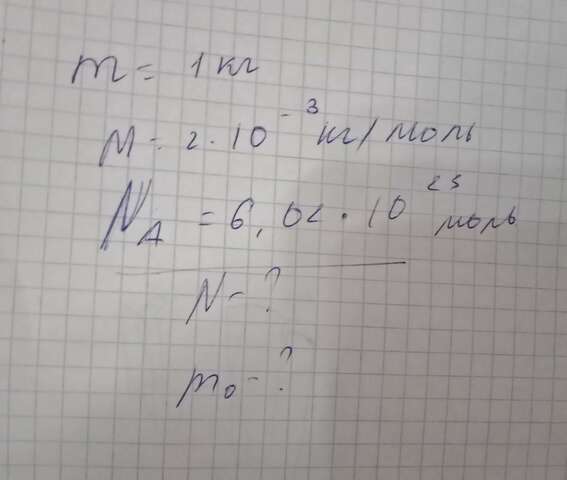 m = 1 кг
M = 2 · 10⁻³ кг/моль
N_A = 6,02 · 10²³ моль
N - ?
m₀ - ?